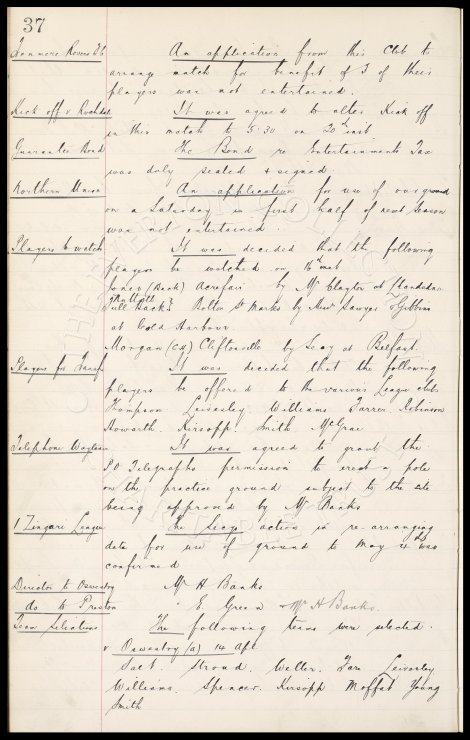 37
Tranmere Rovers Fb An application from this Club to
arrange match for benefit of 3 of their
players was not entertained.
Kick off v Rochdale It was agreed to alter Kick off
in this match to 5-30 on 20th inst.
Guarantee Bond The Bond re Entertainments Tax
was duly sealed & signed.
Northern Union An application for use of our ground
on a Saturday in first half of next season
was not entertained.
Players to watch It was decided that the following
players be watched on 16th inst
Jones (Back) Acrefair by Mr Clayton at Llandudno
Full Backs Bolton St Marks by Messrs Sawyer & Gibbins
at Cold Harbour.
Morgan (CH) Cliftonville by Seay at Belfast.
Players for Transf It was decided that the following
players be offered to the various League clubs
Thompson Leiversley Williams Farrer Robinson
Howarth. Kirsopp. Smith McGrae
Telephone Wayleave It was agreed to grant the
P.O Telegraphs permission to erect a pole
on the practice ground subject to the site
being approved by Mr Banks
I Zingari League The Secys action in re-arranging
date for use of ground to May was
confirmed
Director to Oswestry Mr H Banks
do to Preston " E. Green & Mr H Banks.
Team Selections The following teams were selected.
v Oswestry (a) 14 Apl.
Salt. Stroud. Weller. Fare Leiversley
Williams. Spencer. Kirsopp Moffat Young
Smith